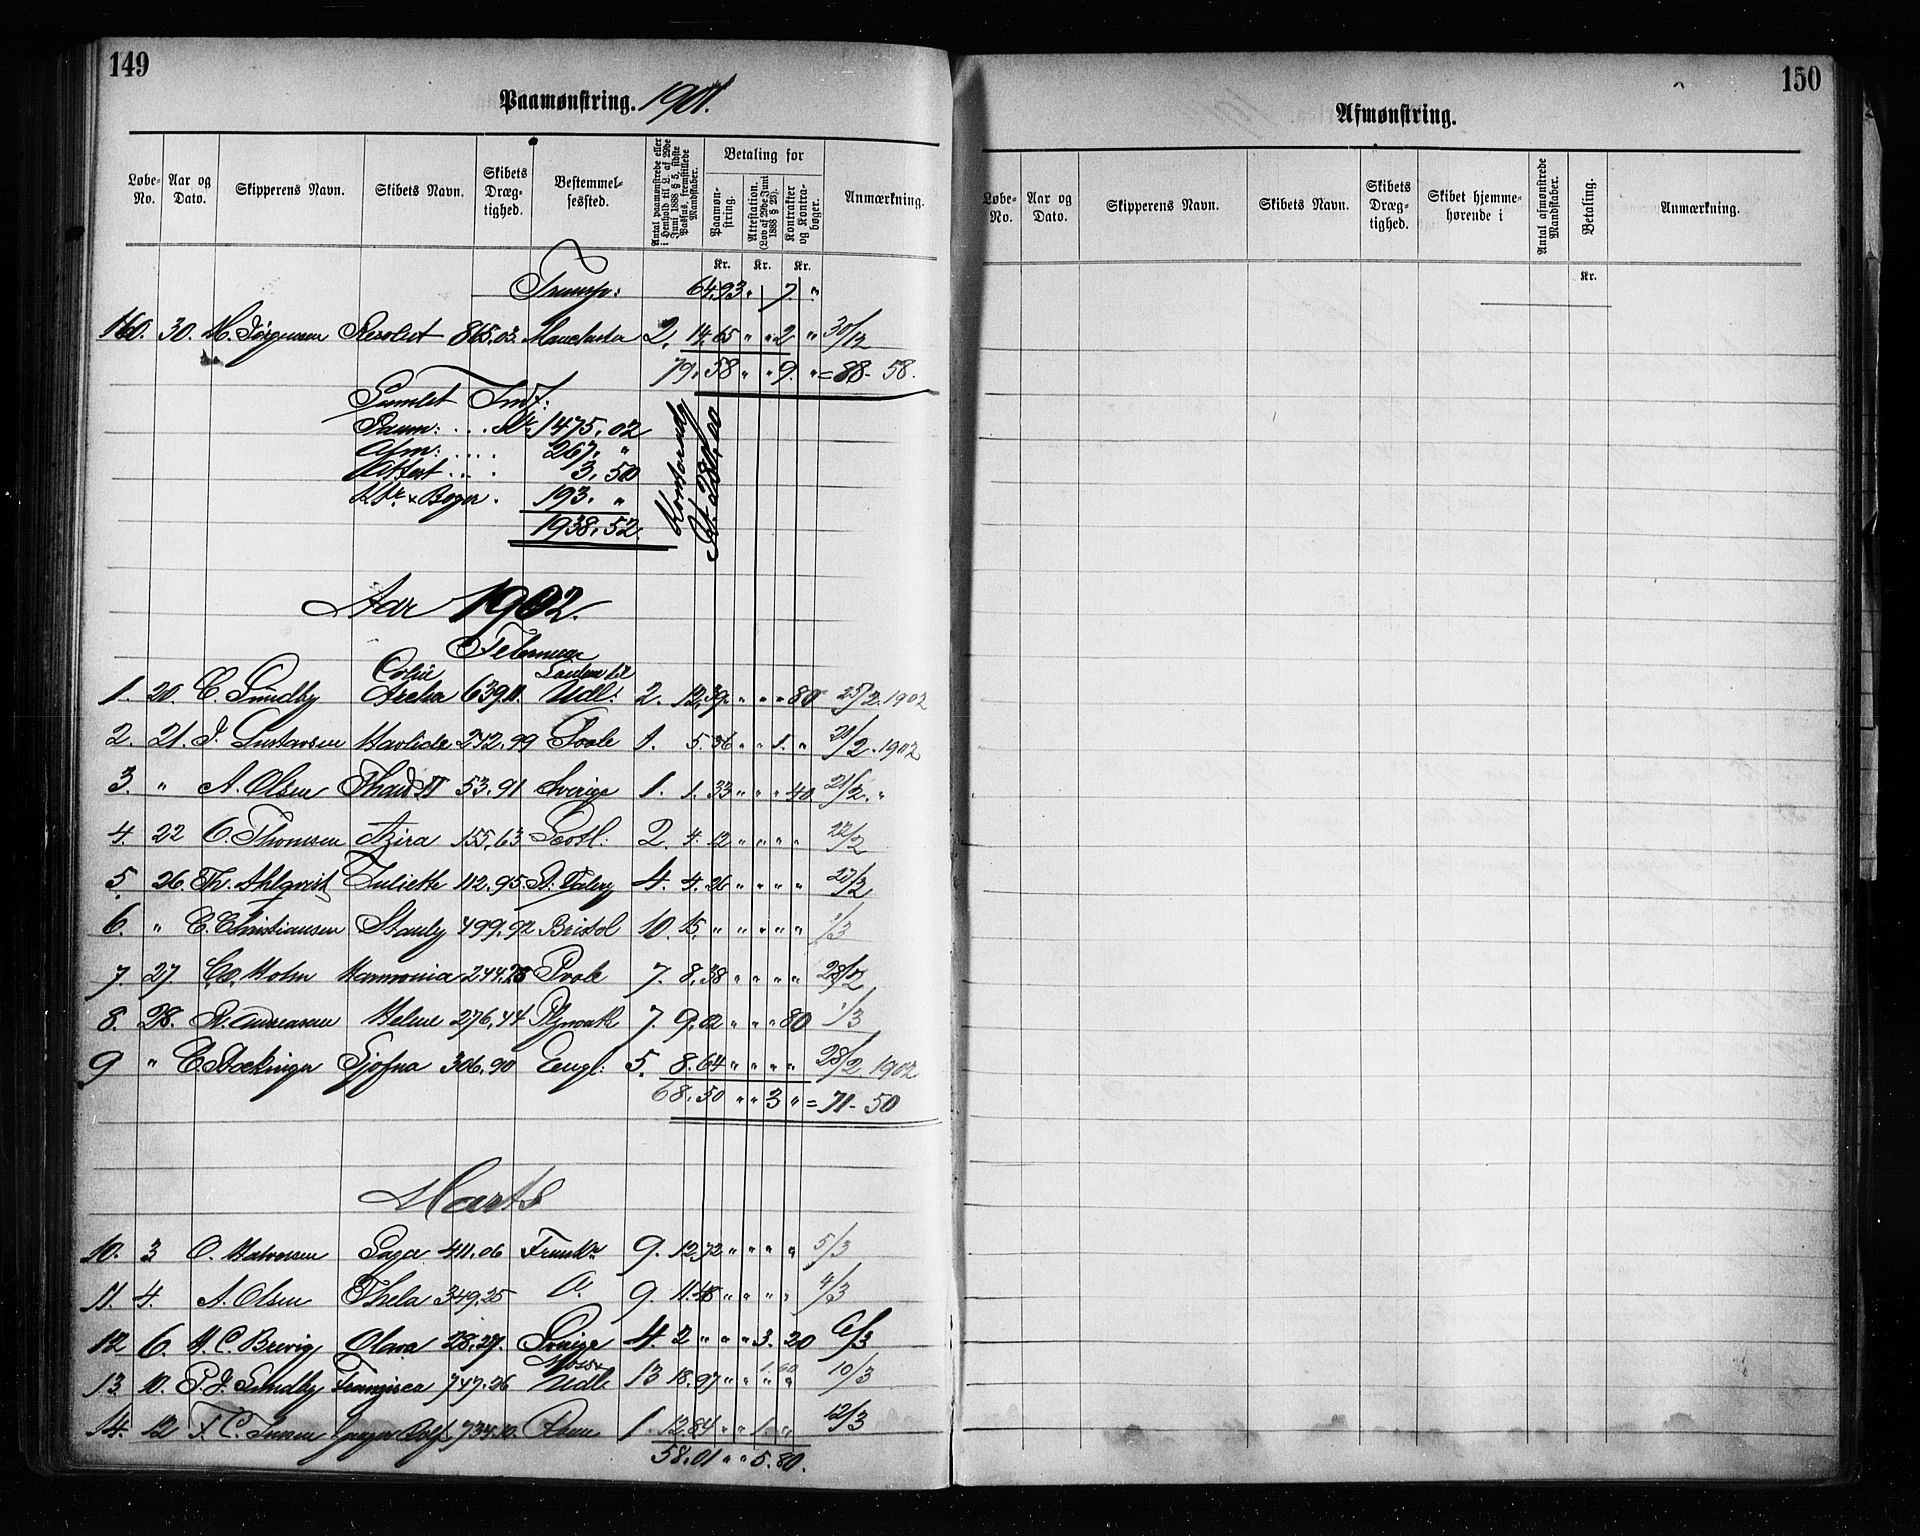 149
Paamønstring. 1901.
Løbe-No. Aar og Dato. Skipperens Navn. Skibets Navn. Skibets Dræg-tighed. Bestemmel-sessted. Antal paamønstrede eller i Henhold til L. af 29de Juni 1888 § 5, sidste Passus, fremstillede Mandskaber. Betaling for Paamøn-string. Attestation. (Lov af 29de Juni 1888 § 23). Kontrakter og Kontra-bøger. Anmærkning.
Kr. Kr. Kr.
Transp: 64,93 " 7. "
160. 30. M. Jørgensen Resolut 865,03. Manchester 2. 14,65 " " 2 " 30/12
79,58 " " 9. " = 88-58.
Samlet Indt:
Paam: . . . Kr. 1475,02
Afm: . . . . 267, "
Attest . . . . 3,50
Ktr. & Bøger . 193. "
1938,52.
Aar 1902.
Februar
1. 20. C. Sundby Areta 639,11. Udl: 2. 12,39 " " " 80 25/2. 1902
2. 21. J. Gustavsen Havlide 242,99 Poole 1. 5,36 " " 1. " 21/2. 1902
3. " A. Olsen Thard II 53,91 Sverige 1. 1.33 " " " 40 21/2. "
4. 22 C. Thomsen Azira 155,63 Scotl: 2. 4.12 " " " " 22/2
5. 26. Th. Ahlqvist Juliette 112,95 4. 4.26 " " " " 27/2
6. " C. Christiansen Stanly 499,92 Bristol 10. 15. " " " " " 1/3
7. 27. C. Holm Harmonia 244,28 Poole 7. 8,38 " " " " 28/2
8. 28. A. Andreasen Helene 276,44 Plymouth 7. 9,02 " " " 80 1/3
9 " C. Stockinger Sjofna 306,90 Engl: 5. 8.64 " " " " 28/2 1902
68,50 " " 3 " = 71-50
Marts
10. 3 O. Halvorsen Saga 411,06 Frankr 9. 12,72 " " " " 5/3
11. 4. A. Olsen Thela 349,25 9. 11.48 " " " " 4/3
12 6. H. C. Brevig Olava 28,27. Sverige 4. 2 " " " 3. 20 6/3
Moss &
13. 10. P. J. Sundby Franzisca 747,26 Udl 13 18,97 " " 1.60 10/3
14. 12 F. C. Jensen 734,10. 1. 12.84 " " 1. " 12/3
58,01 " " 5.80.
150
Afmønstring.
Løbe-No. Aar og Dato. Skipperens Navn. Skibets Navn. Skibets Dræg-tighed. Skibet hjemme-hørende i Antal afmønstrede Mandskaber. Betaling. Anmærkning.
Kr.